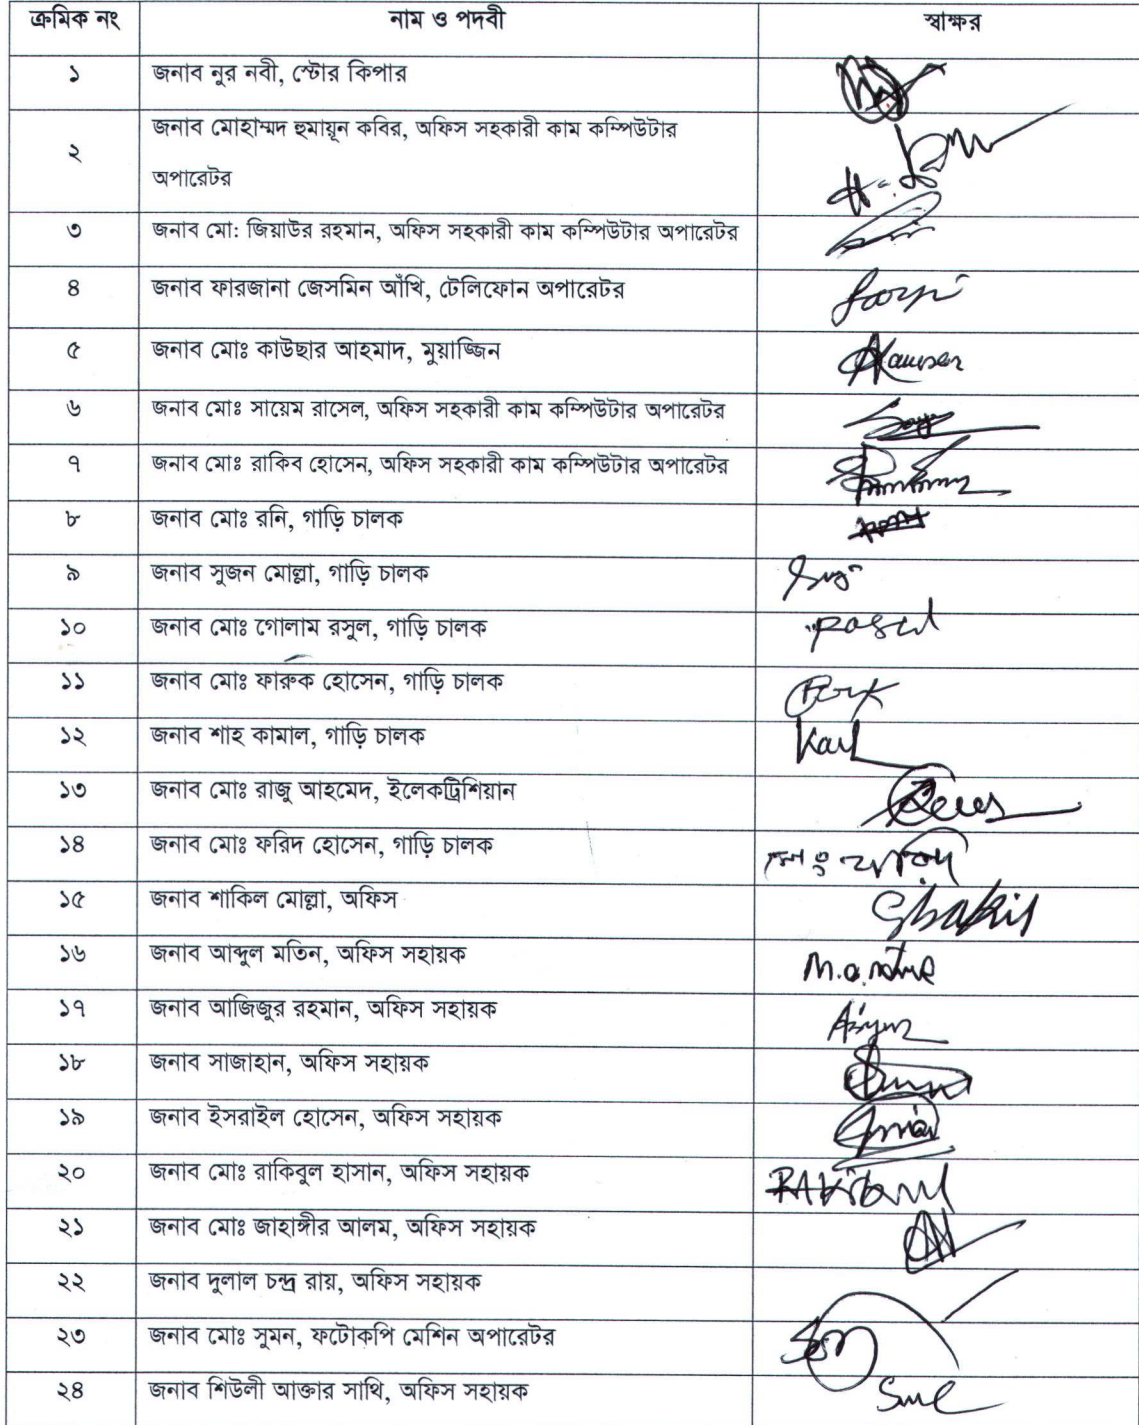 ক্রমিক নং নাম ও পদবী স্বাক্ষর
১ জনাব নুর নবী, স্টোর কিপার
২ জনাব মোহাম্মদ হুমায়ূন কবির, অফিস সহকারী কাম কম্পিউটার
অপারেটর
৩ জনাব মো: জিয়াউর রহমান, অফিস সহকারী কাম কম্পিউটার অপারেটর
৪ জনাব ফারজানা জেসমিন আঁখি, টেলিফোন অপারেটর
৫ জনাব মোঃ কাউছার আহমাদ, মুয়াজ্জিন Kauser
৬ জনাব মোঃ সায়েম রাসেল, অফিস সহকারী কাম কম্পিউটার অপারেটর
৭ জনাব মোঃ রাকিব হোসেন, অফিস সহকারী কাম কম্পিউটার অপারেটর
৮ জনাব মোঃ রনি, গাড়ি চালক
৯ জনাব সুজন মোল্লা, গাড়ি চালক
১০ জনাব মোঃ গোলাম রসুল, গাড়ি চালক
১১ জনাব মোঃ ফারুক হোসেন, গাড়ি চালক
১২ জনাব শাহ কামাল, গাড়ি চালক
১৩ জনাব মোঃ রাজু আহমেদ, ইলেকট্রিশিয়ান
১৪ জনাব মোঃ ফরিদ হোসেন, গাড়ি চালক মোঃ ফরিদ
১৫ জনাব শাকিল মোল্লা, অফিস Shakil
১৬ জনাব আব্দুল মতিন, অফিস সহায়ক
১৭ জনাব আজিজুর রহমান, অফিস সহায়ক
১৮ জনাব সাজাহান, অফিস সহায়ক
১৯ জনাব ইসরাইল হোসেন, অফিস সহায়ক
২০ জনাব মোঃ রাকিবুল হাসান, অফিস সহায়ক RAKIBUL
২১ জনাব মোঃ জাহাঙ্গীর আলম, অফিস সহায়ক
২২ জনাব দুলাল চন্দ্র রায়, অফিস সহায়ক
২৩ জনাব মোঃ সুমন, ফটোকপি মেশিন অপারেটর
২৪ জনাব শিউলী আক্তার সাথি, অফিস সহায়ক